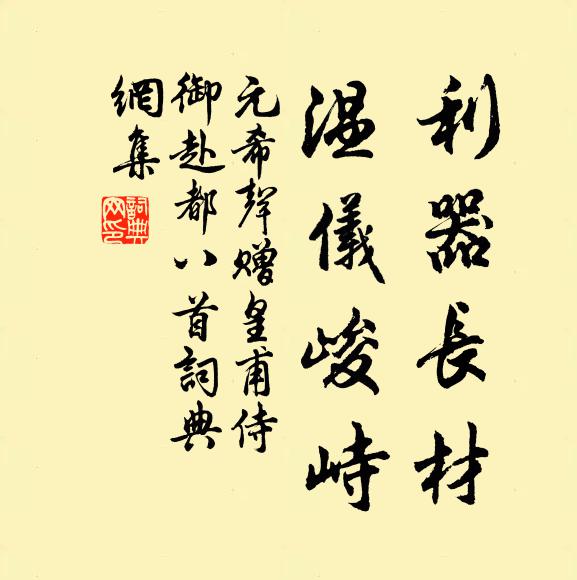 利器長材
溫儀峻峙
元希聲贈皇甫侍
御赴都八首詞典
網集
詞典
网印